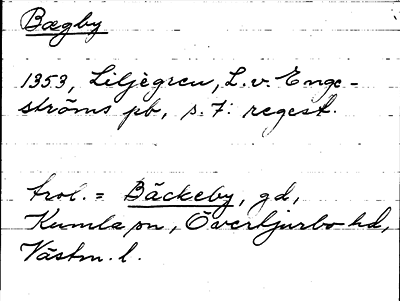 Bægby
1353, Liljegren, L. v. Enge-
ströms pb, s. 7: regest.
trol. = Bäckeby, gd,
Kumla sn, Övertjurbo hd,
Västm. l.